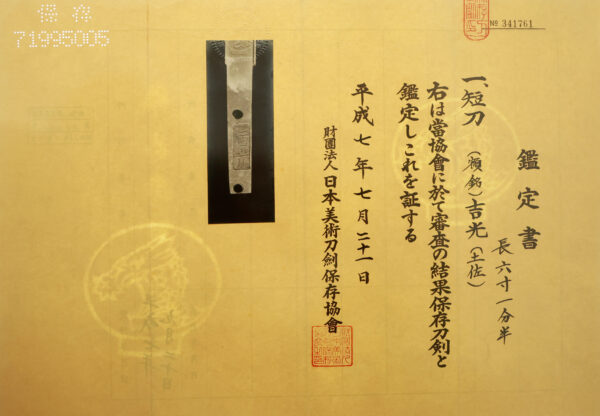 保存
71995005
№ 341761
鑑定書
一、短刀（額銘）吉光（土佐）
長六寸一分半
右は當協會に於て審査の結果保存刀剣と
鑑定しこれを証する
平成七年七月二十一日
財團法人日本美術刀劍保存協會